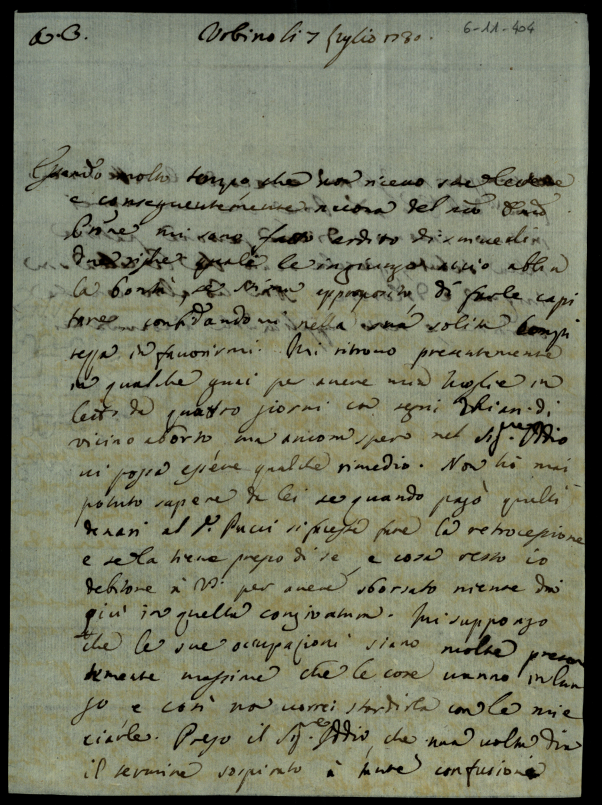 6-11-404
Urbino li 7 Luglio 1780.
molto tempo che non ricevo sue lettere
e conseguentemente ancora del
fratto l'ardito di
quali le acciò abbia
la bontà approposito di farle capi
tare confidandomi nella sua solita
in favorirmi. Mi ritrovo presentemente
in qualche guai per avere mia moglie in
letto da quattro giorni con segni di
vicino aborto ma ancora spero nel Sig.re Iddio
vi possa essere qualche rimedio. Non hò mai
potuto sapere da lei se quando pagò quelli
denari al Pucci si facesse fare la retrocessione
e se la tiene presso di se, e cosa resto io
debitore à per avere sborsato niente di
più in quella congiuntura. Mi suppongo
che le sue occupazioni siano molte presen
temente massime che le cose vanno in lun
go e così non vorrei stordirla con le mie
ciarle. Prego il Sig.re Iddio, che una volta dia
il termine sospirato à tante confusioni